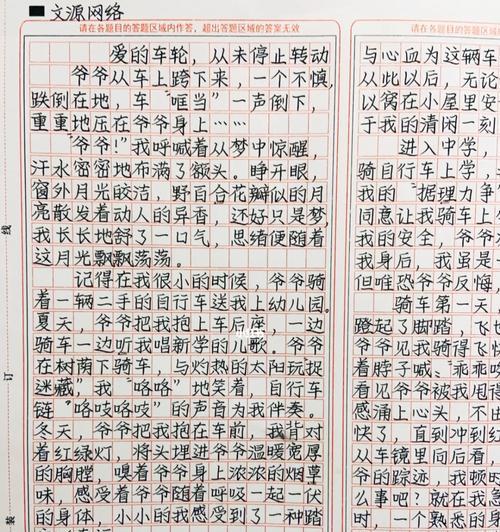 文源网络
请在各题目的答题区域内作答，超出答题区域的答案无效
爱的车轮，从未停止转动
爷爷从车上跨下来，一个不慎，
跌倒在地，车“哐当”一声倒下，
重重地压在爷爷身上……
“爷爷！”我呼喊着从梦中惊醒，
汗水密密地布满了额头。睁开眼，
窗外月光皎洁，野百合花瓣似的月
亮散发着动人的异香，还好只是梦，
我长长地舒了一口气，思绪便随着
这月光飘飘荡荡。
记得在我很小的时候，爷爷骑
着一辆二手的自行车送我上幼儿园。
夏天，爷爷把我抱上车后座，一边
骑车一边听我唱新学的儿歌。爷爷
在树荫下骑车，与灼热的太阳玩捉
迷藏”，我“咯咯”地笑着，自行车
链“咯吱咯吱”的声音为我伴奏。
冬天，爷爷把我抱在车前，我背对
着红绿灯，将头埋进爷爷温暖宽厚
的胸膛，嗅着爷爷身上浓浓的烟草
味，感受着爷爷随着呼吸一起一伏
的身体，小小的我感受到了一种踏
线
订
装
请在各题目的答题区域内作答，超出答题区
与心血为这辆车
从此以后，无论
以窝在小屋里安
于我的清闲一刻
进入中学，
骑自行车上学，
我的“据理力争
同意让我骑车上
我的安全，爷爷
我身后，我虽是一
但唯恐爷爷反悔，
骑车第一天，
蹬起了脚踏，飞快
爷爷见我骑得飞快
着脖子喊、“乖乖
看见爷爷被我甩得
感涌上心头，不由
快了，直到冲到红
从车镜里向后看，
爷的踪迹，我顿时
么事吧？就在我
时，一个熟悉的身